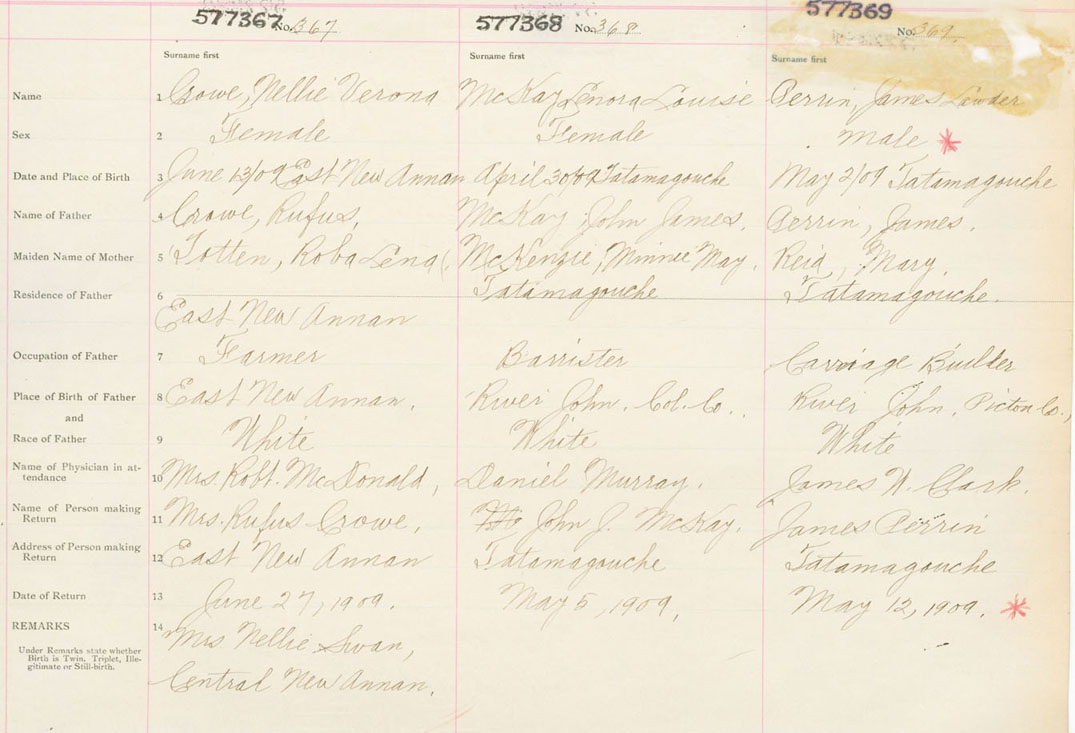 577367 No. 367
577368 No. 368
577369 No. 369
Surname first Surname first Surname first
Name 1 Crowe, Nellie Verona McKay Lenora Louise Perrin, James Lowder
Sex 2 Female Female Male *
Date and Place of Birth 3 June 13/09 East New Annan April 30/09 Tatamagouche May 2/09 Tatamagouche
Name of Father 4 Crowe, Rufus, McKay John James. Perrin, James.
Maiden Name of Mother 5 Totten, Roba Lena. McKenzie, Minnie May. Reid, Mary.
Residence of Father 6 East New Annan Tatamagouche Tatamagouche.
Occupation of Father 7 Farmer Barrister Carriage Builder
Place of Birth of Father 8 East New Annan. River John. Col. Co.. River John, Pictou Co.,
and
Race of Father 9 White White White
Name of Physician in at-
tendance 10 Mrs. Robt. McDonald, Daniel Murray. James W. Clark.
Name of Person making
Return 11 Mrs. Rufus Crowe, John J. McKay. James Perrin
Address of Person making
Return 12 East New Annan Tatamagouche Tatamagouche
Date of Return 13 June 27, 1909. May 5, 1909, May 12, 1909. *
REMARKS 14 Mrs Nellie Swan,
Under Remarks state whether
Birth is Twin, Triplet, Ille-
gitimate or Still-birth.
Central New Annan.